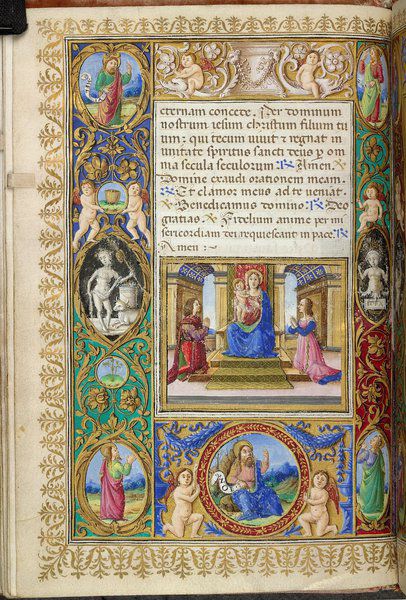 eternam concete. Per dominum
nostrum iesum christum filium tu
um: qui tecum vivit ⁊ regnat in
unitate spiritus sancti deus p̲ om
nia secula seculorum. ℟ Amen.
Domine exaudi orationem meam.
Et clamor meus ad te veniat.
Benedicamus domino. Deo
gratias. Fidelium anime per mi
sericordiam dei requiescant in pace. ℟
Amen :~